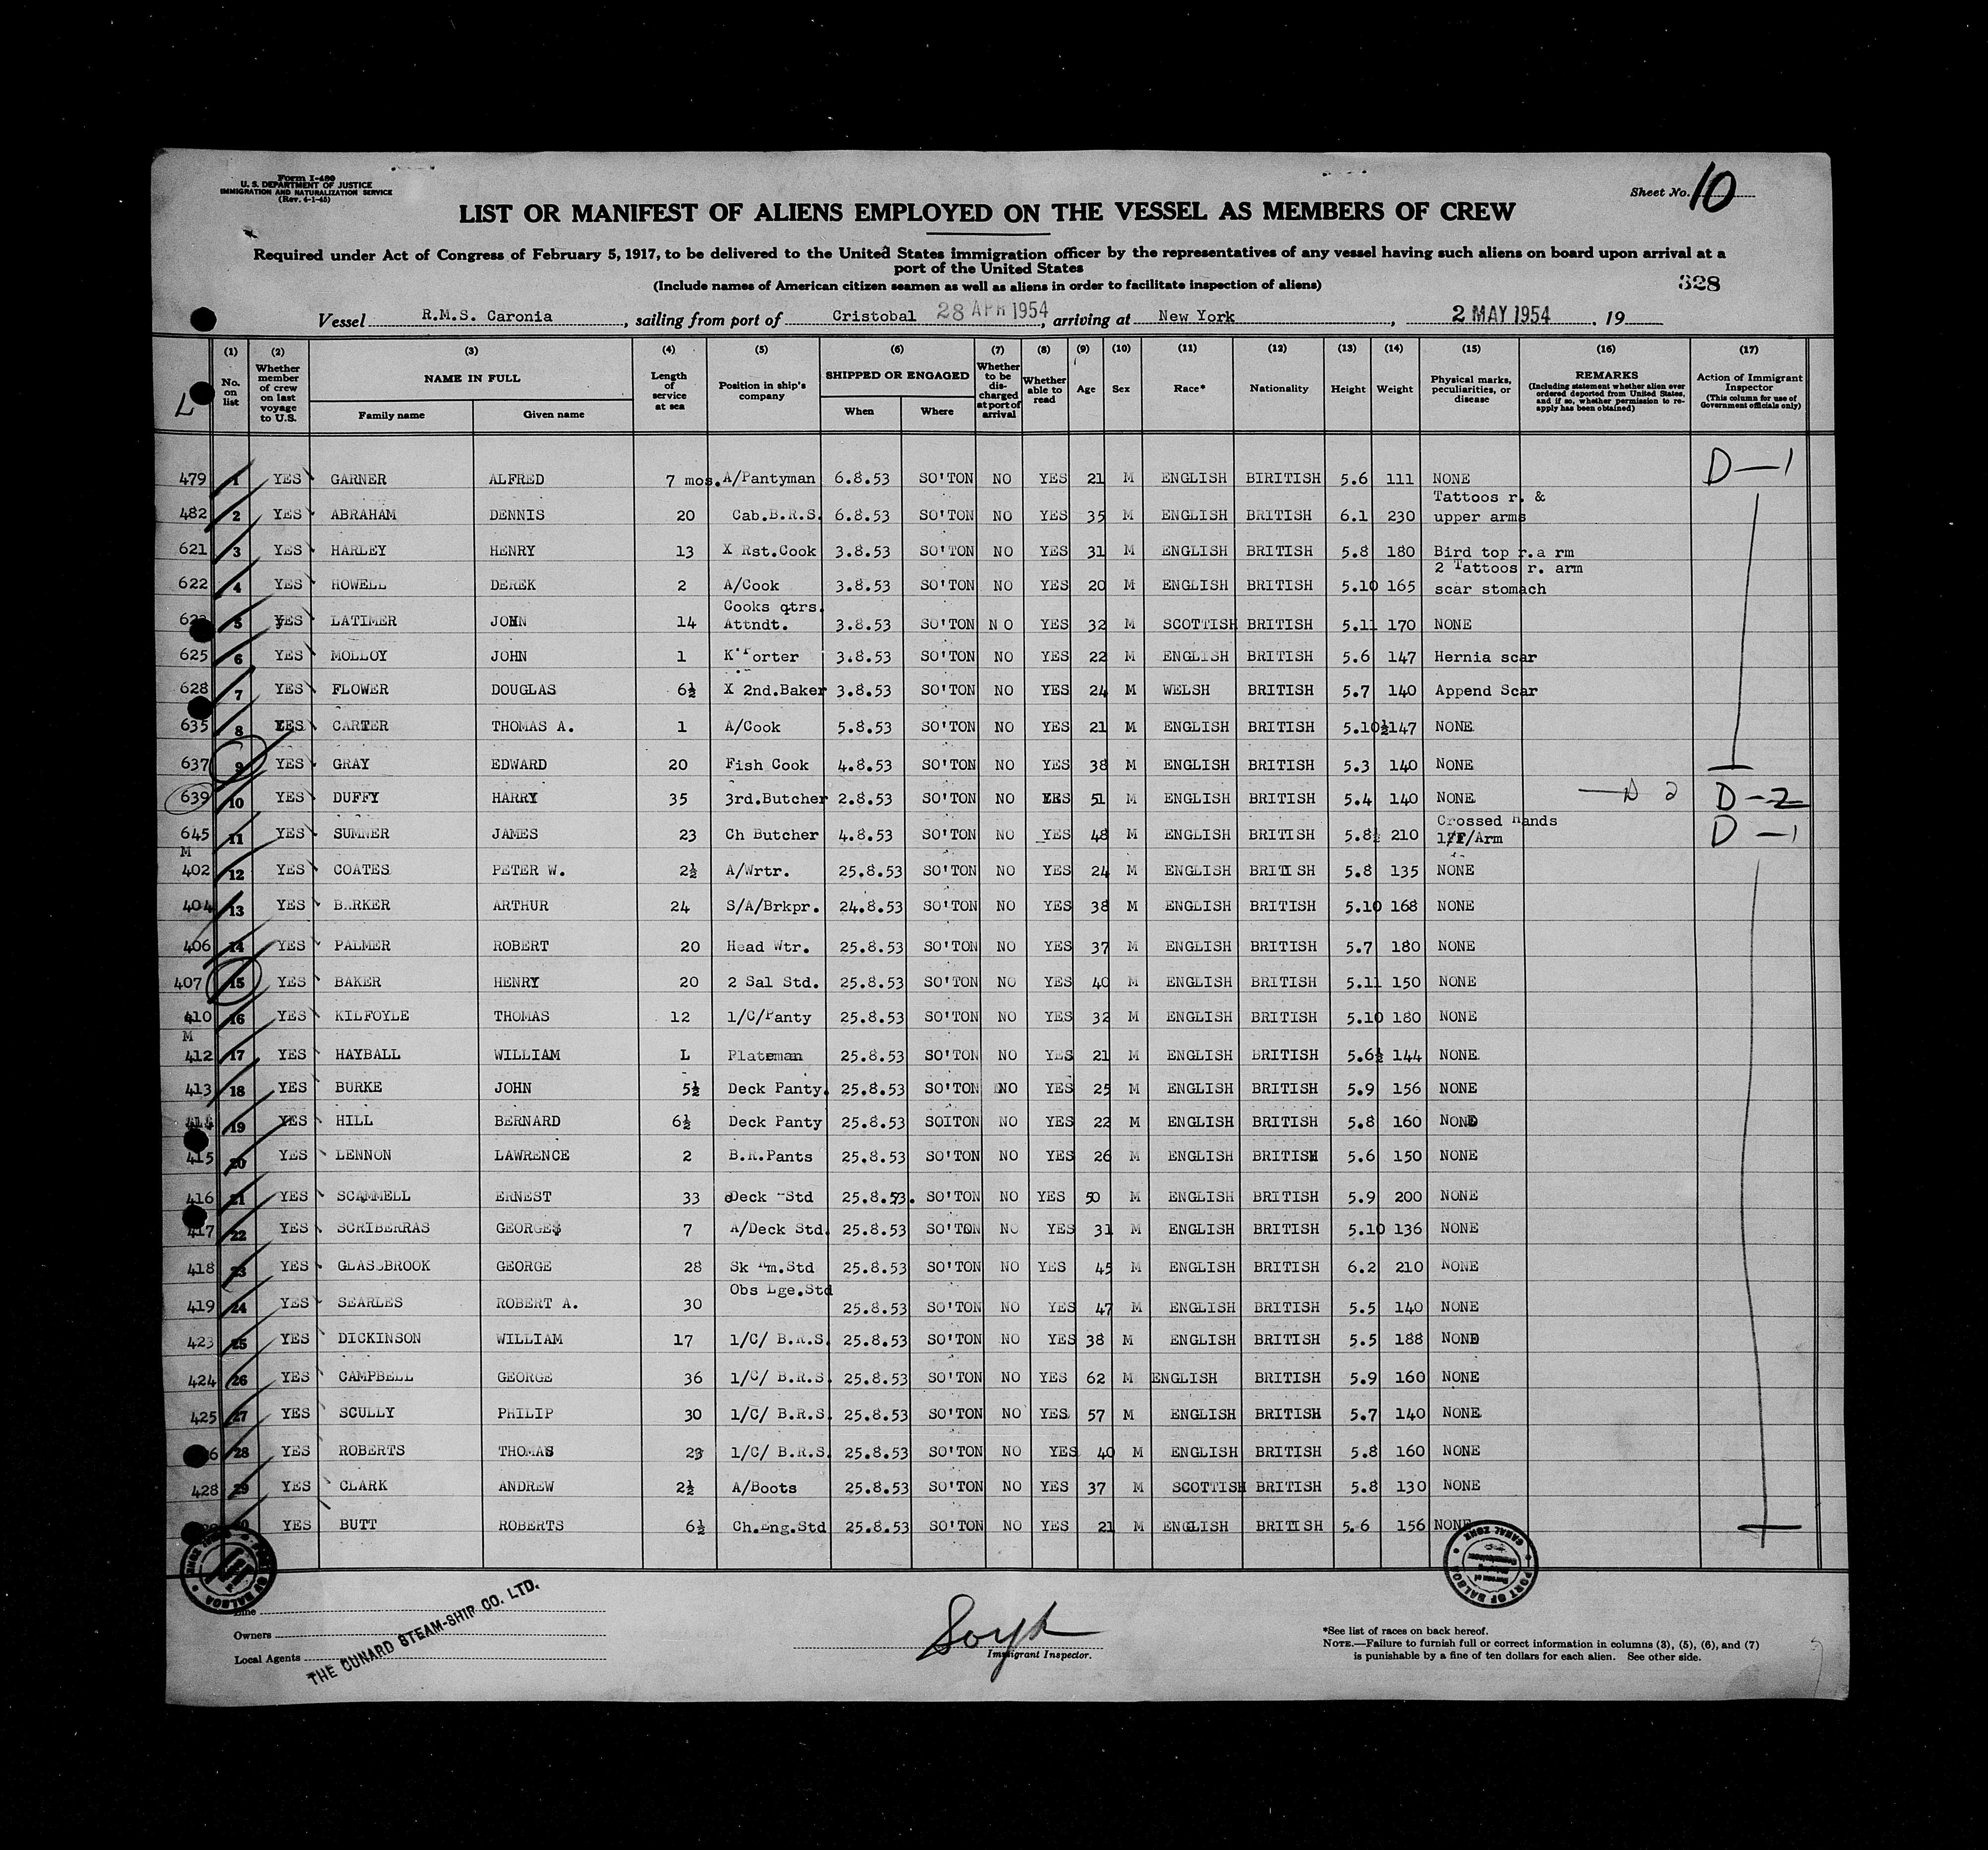 Form I-480
U. S. DEPARTMENT OF JUSTICE
IMMIGRATION AND NATURALIZATION SERVICE
(Rev. 4-1-45)
Sheet No. 10
LIST OR MANIFEST OF ALIENS EMPLOYED ON THE VESSEL AS MEMBERS OF CREW
Required under Act of Congress of February 5, 1917, to be delivered to the United States immigration officer by the representatives of any vessel having such aliens on board upon arrival at a
port of the United States
(Include names of American citizen seamen as well as aliens in order to facilitate inspection of aliens)
328
Vessel R.M.S. Caronia, sailing from port of Cristobal 28 APR 1954, arriving at New York, 2 MAY 1954, 19
L
(1) No. on list (2) Whether member of crew on last voyage to U.S. (3) NAME IN FULL Family name Given name (4) Length of service at sea (5) Position in ship's company (6) SHIPPED OR ENGAGED When Where (7) Whether to be discharged at port of arrival (8) Whether able to read (9) Age (10) Sex (11) Race* (12) Nationality (13) Height (14) Weight (15) Physical marks, peculiarities, or disease (16) REMARKS (Including statement whether alien ever ordered deported from United States, and if so, whether permission to re-apply has been obtained) (17) Action of Immigrant Inspector (This column for use of Government officials only)
479 1 YES GARNER ALFRED 7 mos. A/Pantyman 6.8.53 SO'TON NO YES 21 M ENGLISH BIRITISH 5.6 111 NONE D-1
482 2 YES ABRAHAM DENNIS 20 Cab.B.R.S. 6.8.53 SO'TON NO YES 35 M ENGLISH BRITISH 6.1 230 Tattoos r. & upper arms
621 3 YES HARLEY HENRY 13 X Rst.Cook 3.8.53 SO'TON NO YES 31 M ENGLISH BRITISH 5.8 180 Bird top r.a rm
622 4 YES HOWELL DEREK 2 A/Cook 3.8.53 SO'TON NO YES 20 M ENGLISH BRITISH 5.10 165 2 Tattoos r. arm scar stomach
5 YES LATIMER JOHN 14 Cooks qtrs. Attndt. 3.8.53 SO'TON N O YES 32 M SCOTTISH BRITISH 5.11 170 NONE
625 6 YES MOLLOY JOHN 1 K'Porter 3.8.53 SO'TON NO YES 22 M ENGLISH BRITISH 5.6 147 Hernia scar
628 7 YES FLOWER DOUGLAS 6½ X 2nd.Baker 3.8.53 SO'TON NO YES 24 M WELSH BRITISH 5.7 140 Append Scar
635 8 YES CARTER THOMAS A. 1 A/Cook 5.8.53 SO'TON NO YES 21 M ENGLISH BRITISH 5.10½ 147 NONE
637 9 YES GRAY EDWARD 20 Fish Cook 4.8.53 SO'TON NO YES 38 M ENGLISH BRITISH 5.3 140 NONE
639 10 YES DUFFY HARRY 35 3rd.Butcher 2.8.53 SO'TON NO YES 51 M ENGLISH BRITISH 5.4 140 NONE D 2 D-2
645 11 YES SUMNER JAMES 23 Ch Butcher 4.8.53 SO'TON NO YES 48 M ENGLISH BRITISH 5.8½ 210 Crossed hands l/F/Arm D-1
M
402 12 YES COATES PETER W. 2½ A/Wrtr. 25.8.53 SO'TON NO YES 24 M ENGLISH BRITISH 5.8 135 NONE
404 13 YES BARKER ARTHUR 24 S/A/Brkpr. 24.8.53 SO'TON NO YES 38 M ENGLISH BRITISH 5.10 168 NONE
406 14 YES PALMER ROBERT 20 Head Wtr. 25.8.53 SO'TON NO YES 37 M ENGLISH BRITISH 5.7 180 NONE
407 15 YES BAKER HENRY 20 2 Sal Std. 25.8.53 SO'TON NO YES 40 M ENGLISH BRITISH 5.11 150 NONE
410 16 YES KILFOYLE THOMAS 12 1/C/Panty 25.8.53 SO'TON NO YES 32 M ENGLISH BRITISH 5.10 180 NONE
M
412 17 YES HAYBALL WILLIAM L Plateman 25.8.53 SO'TON NO YES 21 M ENGLISH BRITISH 5.6½ 144 NONE
413 18 YES BURKE JOHN 5½ Deck Panty. 25.8.53 SO'TON NO YES 25 M ENGLISH BRITISH 5.9 156 NONE
414 19 YES HILL BERNARD 6½ Deck Panty 25.8.53 SOITON NO YES 22 M ENGLISH BRITISH 5.8 160 NONE
415 20 YES LENNON LAWRENCE 2 B.R.Pants 25.8.53 SO'TON NO YES 26 M ENGLISH BRITISH 5.6 150 NONE
416 21 YES SCAMMELL ERNEST 33 Deck Std 25.8.53. SO'TON NO YES 50 M ENGLISH BRITISH 5.9 200 NONE
417 22 YES SCRIBERRAS GEORGES 7 A/Deck Std. 25.8.53 SO'TON NO YES 31 M ENGLISH BRITISH 5.10 136 NONE
418 23 YES GLASSBROOK GEORGE 28 Sk Rm.Std 25.8.53 SO'TON NO YES 45 M ENGLISH BRITISH 6.2 210 NONE
419 24 YES SEARLES ROBERT A. 30 Obs Lge.Std 25.8.53 SO'TON NO YES 47 M ENGLISH BRITISH 5.5 140 NONE
423 25 YES DICKINSON WILLIAM 17 1/C/ B.R.S. 25.8.53 SO'TON NO YES 38 M ENGLISH BRITISH 5.5 188 NONE
424 26 YES CAMPBELL GEORGE 36 1/C/ B.R.S. 25.8.53 SO'TON NO YES 62 M ENGLISH BRITISH 5.9 160 NONE
425 27 YES SCULLY PHILIP 30 1/C/ B.R.S. 25.8.53 SO'TON NO YES 57 M ENGLISH BRITISH 5.7 140 NONE
28 YES ROBERTS THOMAS 23 1/C/ B.R.S. 25.8.53 SO'TON NO YES 40 M ENGLISH BRITISH 5.8 160 NONE
428 29 YES CLARK ANDREW 2½ A/Boots 25.8.53 SO'TON NO YES 37 M SCOTTISH BRITISH 5.8 130 NONE
YES BUTT ROBERTS 6½ Ch.Eng.Std 25.8.53 SO'TON NO YES 21 M ENGLISH BRITISH 5.6 156 NONE
PORT OF BALBOA CANAL ZONE
PORT OF BALBOA CANAL ZONE
Line
Owners
Local Agents
THE CUNARD STEAM-SHIP CO. LTD.
Immigrant Inspector.
*See list of races on back hereof.
NOTE.—Failure to furnish full or correct information in columns (3), (5), (6), and (7)
is punishable by a fine of ten dollars for each alien. See other side.